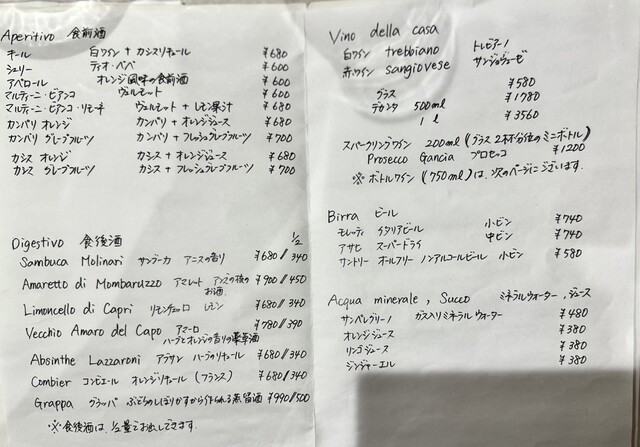 Aperitivo 食前酒
キール 白ワイン + カシスリキュール ¥680
シェリー ティオ・ペペ ¥600
アペロール オレンジ風味の食前酒 ¥600
マルティーニ・ビアンコ ヴェルモット ¥600
マルティーニ・ビアンコ・リモーネ ヴェルモット + レモン果汁 ¥680
カンパリ オレンジ カンパリ + オレンジジュース ¥680
カンパリ グレープフルーツ カンパリ + フレッシュグレープフルーツ ¥700
カシス オレンジ カシス + オレンジジュース ¥680
カシス グレープフルーツ カシス + フレッシュグレープフルーツ ¥700
Digestivo 食後酒 1/2
Sambuca Molinari サンブーカ アニスの香り ¥680/340
Amaretto di Mombaruzzo アマレット アンズの核のお酒 ¥900/450
Limoncello di Capri リモンチェッロ レモン ¥680/340
Vecchio Amaro del Capo アマーロ ¥780/390
ハーブとオレンジの香りの薬草酒
Absinthe Lazzaroni アブサン ハーブのリキュール ¥680/340
Combier コンビエール オレンジリキュール (フランス) ¥680/340
Grappa グラッパ ぶどうのしぼりかすから作られる蒸留酒 ¥990/500
※食後酒は、1/2量でお出しできます。
Vino della casa
白ワイン trebbiano トレビアーノ
赤ワイン sangiovese サンジョヴェーゼ
グラス ¥580
デカンタ 500ml ¥1780
1l ¥3560
スパークリングワイン 200ml (グラス2杯分位のミニボトル)
Prosecco Gancia プロセッコ ¥1200
※ボトルワイン (750ml) は、次のページにございます。
Birra ビール
モレッティ イタリアビール 小ビン ¥740
アサヒ スーパードライ 中ビン ¥740
サントリー オールフリー ノンアルコールビール 小ビン ¥580
Acqua minerale, Succo ミネラルウォーター、ジュース
サンペレグリーノ ガス入りミネラルウォーター ¥480
オレンジジュース ¥380
リンゴジュース ¥380
ジンジャーエール ¥380